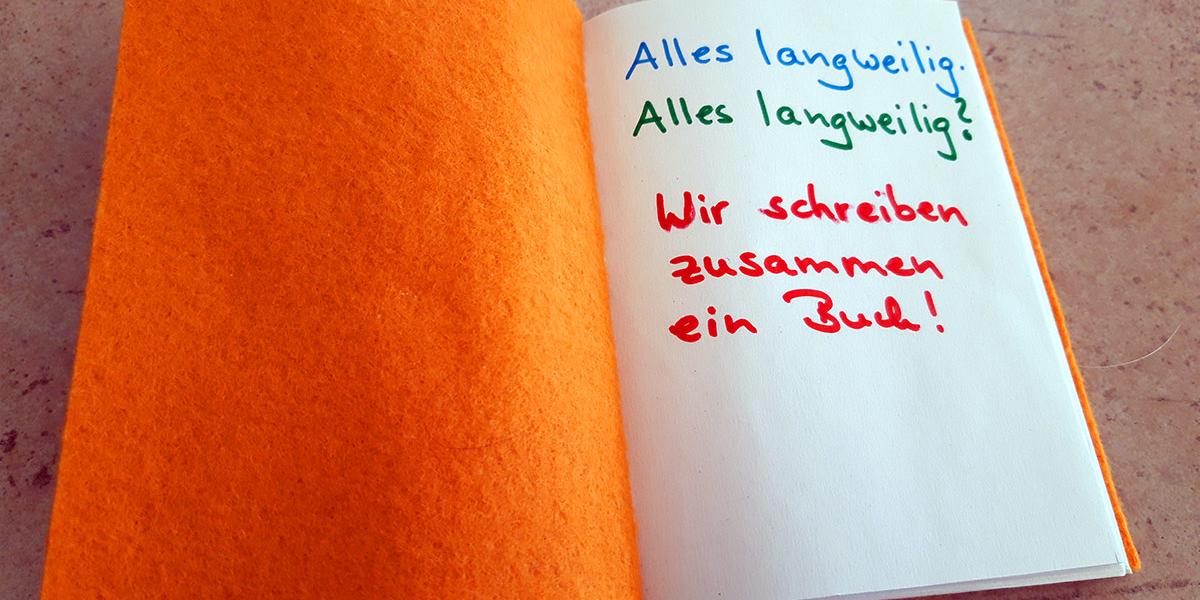 Alles langweilig.
Alles langweilig?
Wir schreiben
zusammen
ein Buch!